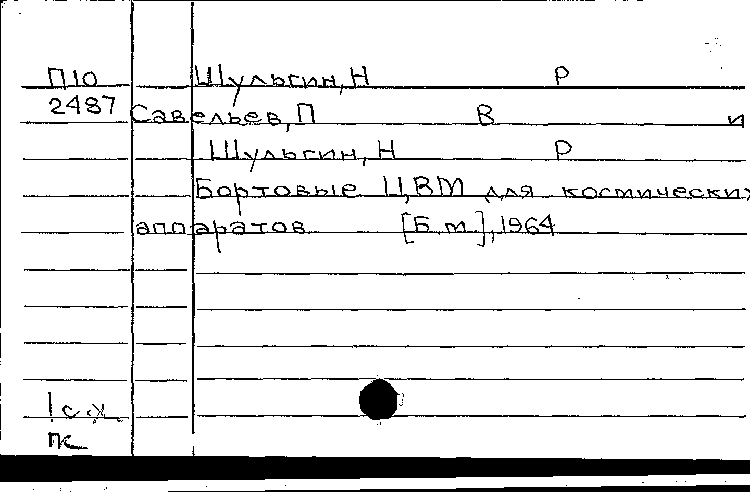 П10 Шульгин, Н Р
2487 Савельев, П В и
Шульгин, Н Р
Бортовые ЦВМ для космических
аппаратов [Б.м.], 1964
1 с.х.
пк